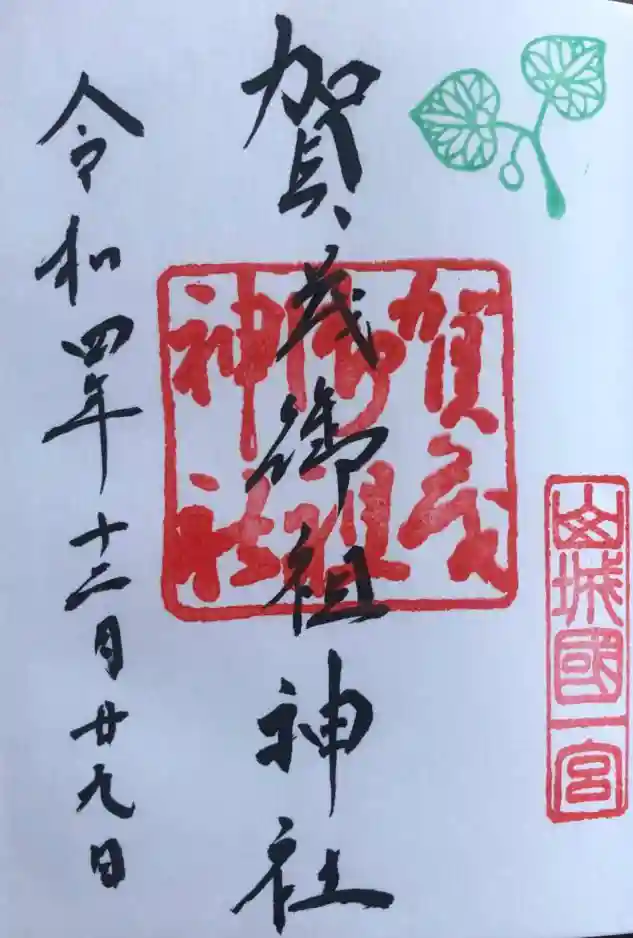 山城國一宮
賀茂御祖神社
賀茂
御祖
神社
令和四年十二月廿九日